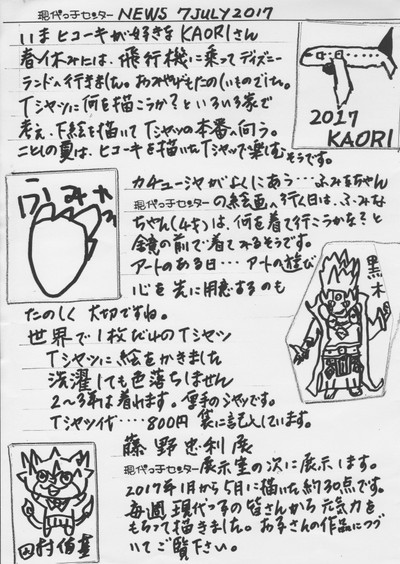 現代っ子センター NEWS 7 JULY 2017
いまヒコーキが好きなKAORIさん
春休みには、飛行機に乗ってディズニー
ランドへ行きました。おみやげもたのしいものでした。
Tシャツに何を描こうか?といろいろ家で
考え、下絵を描いてTシャツの本番へ向う。
ことしの夏は、ヒコーキを描いたTシャツで楽しむそうです。
2017
KAORI
ふみな
カチューシャがよくにあう…ふみなちゃん
現代っ子センターの絵画へ行く日は、ふみな
ちゃん(4才)は、何を着て行こうかな?と
鏡の前で着てみるそうです。
アートのある日…アートの遊び
心を先に用意するのも
たのしく大切ですね。
黒木
世界で1枚だけのTシャツ
Tシャツに絵をかきました
洗濯しても色落ちしません
2〜3年は着れます。厚手のシャツです。
Tシャツ代……800円 袋に記入しています。
藤野忠利展
現代っ子センター展示室の次に展示します。
2017年1月から5月に描いた約30点です。
毎週現代っ子の皆さんから元気力を
もらって描きました。お子さんの作品につづ
いてご覧下さい。
田村伯